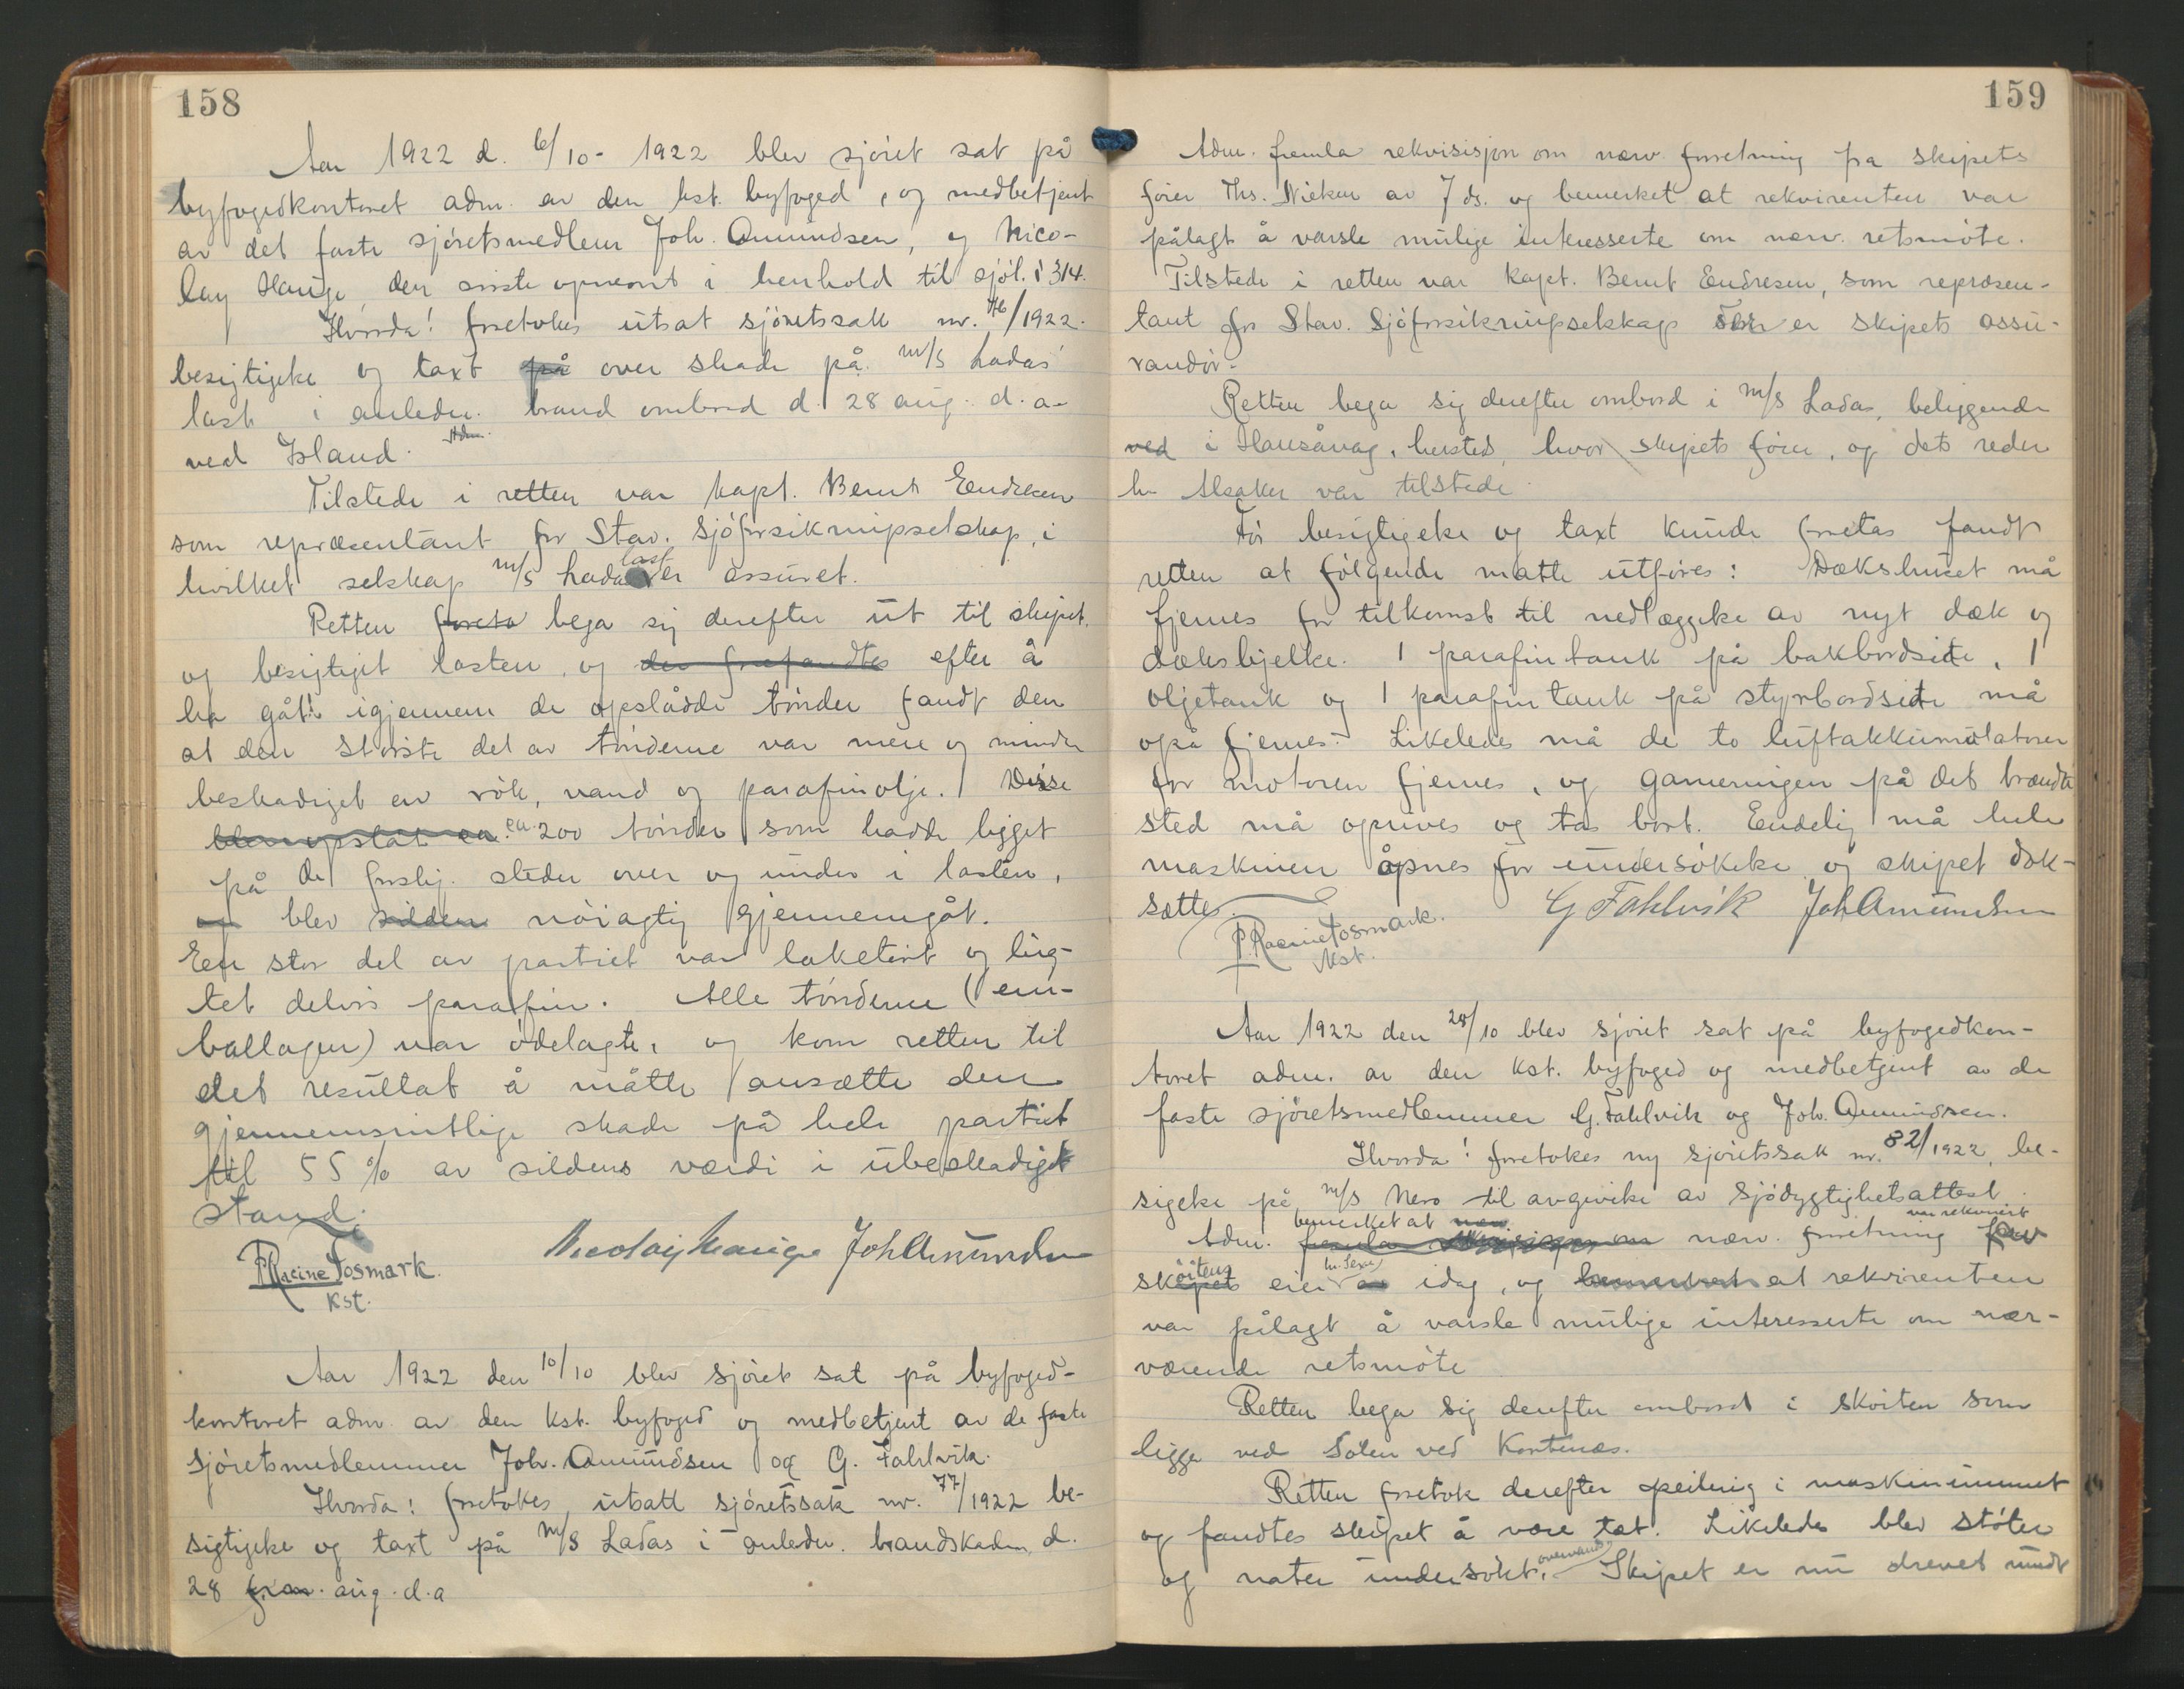 158
Aar 1922 d. 6/10 - 1922 blev sjöret sat på
byfogedkontoret adm. av den kst. byfoged, og medbetjent
av det faste sjöretsmedlem Joh. Amundsen, og Nico-
lay Hauge, den siste opnevnt i henhold til sjöl. § 314.
Hvorda! foretokes utsat sjöretssak nr. 76/1922.
besigtigelse og taxt på over skade på m/s Ladas'
last i anledn. brand ombord d. 28 aug. d.a.
ved Island. Adm.
Tilstede i retten var kapt. Bernt Endresen
som repræsentant for Stav. Sjöforsikringselskap, i
hvilket selskap m/s Ladas last er assuret.
Retten foreto bega sig derefter ut til skipet,
og besigtiget lasten, og der forefandtes efter å
ha gått igjennem de opslådde tönder fandt den
at den störste del av tönderne var mere og mindre
beskadiget av rök, vand og parafinolje. Disse
blev opslåt ca. ca. 200 tönder som hadde ligget
på de forskj. steder over og under i lasten,
og blev silden nöiagtig gjennemgåt.
En stor del av partiet var laketört og lug-
tet delvis parafin. Alle tönderne (em-
ballagen) var ödelagte, og kom retten til
det resultat å måtte ansætte den
gjennemsnitlige skade på hele partiet
til 55 % av sildens værdi i ubeskadiget
stand.
P. Racine Fosmark. Nicolay Hauge Joh Amundsen
Kst.
Aar 1922 den 10/10 blev sjöret sat på byfoged-
kontoret adm. av den kst. byfoged og medbetjent av de faste
sjöretsmedlemmer Joh. Amundsen og G. Fahlvik.
Hvorda: foretokes utsatt sjöretssak nr. 77/1922 be-
sigtigelse og taxt på M/S Ladas i anledn. brandskaden d.
28 aug. d.a
159
Adm. fremla rekvisisjon om nærv. forretning fra skipets
förer Ths. Nielsen av 7 ds. og bemerket at rekvirenten var
pålagt å varsle mulige interesserte om nærv. retsmöte.
Tilstede i retten var kapt. Bernt Endresen, som repræsen-
tant for Stav. Sjöforsikringselskap som er skipets assu-
randör.
Retten bega sig derefter ombord i m/s Ladas, beliggende
ved i Hausåvåg, hersted, hvor skipets förer, og dets reder
hr Alsaker var tilstede.
För besigtigelse og taxt kunde foretas fandt
retten at fölgende måtte utföres: Dækshuset må
fjernes for tilkomst til nedlæggelse av nyt dæk og
dæksbjelke. 1 parafintank på bakbordside, 1
oljetank og 1 parafintank på styrbordside må
også fjernes. Likeledes må de to luftakkumulatorer
for motoren fjernes, og garneringen på det brændte
sted må oprives og tas bort. Endelig må hele
maskinen åpnes for undersökelse og skipet dok-
sættes. G Fahlvik Joh Amundsen
P. Racine Fosmark.
Kst.
Aar 1922 den 28/10 blev sjöret sat på byfogedkon-
toret adm. av den kst. byfoged og medbetjent av de
faste sjöretsmedlemmer G. Fahlvik og Joh. Amundsen.
Hvorda! foretokes ny sjöretssak nr. 82/1922, be-
sigelse på m/s Nero til avgivelse av sjödygtighetsattest.
bemerket at var rekvirert
Adm. fremla nærv. forretning fra
sköitens eier av idag, og bemerket at rekvirenten
var pålagt å varsle mulige interesserte om nær-
værende retsmöte
Retten bega sig derefter ombord i sköiten som
ligge ved ved Kortenæs.
Retten foretok derefter peiling i maskinrummet
og fandtes skipet å være tæt. Likeledes blev stöter
og nater undersökt, overvands Skipet er nu drevet rundt